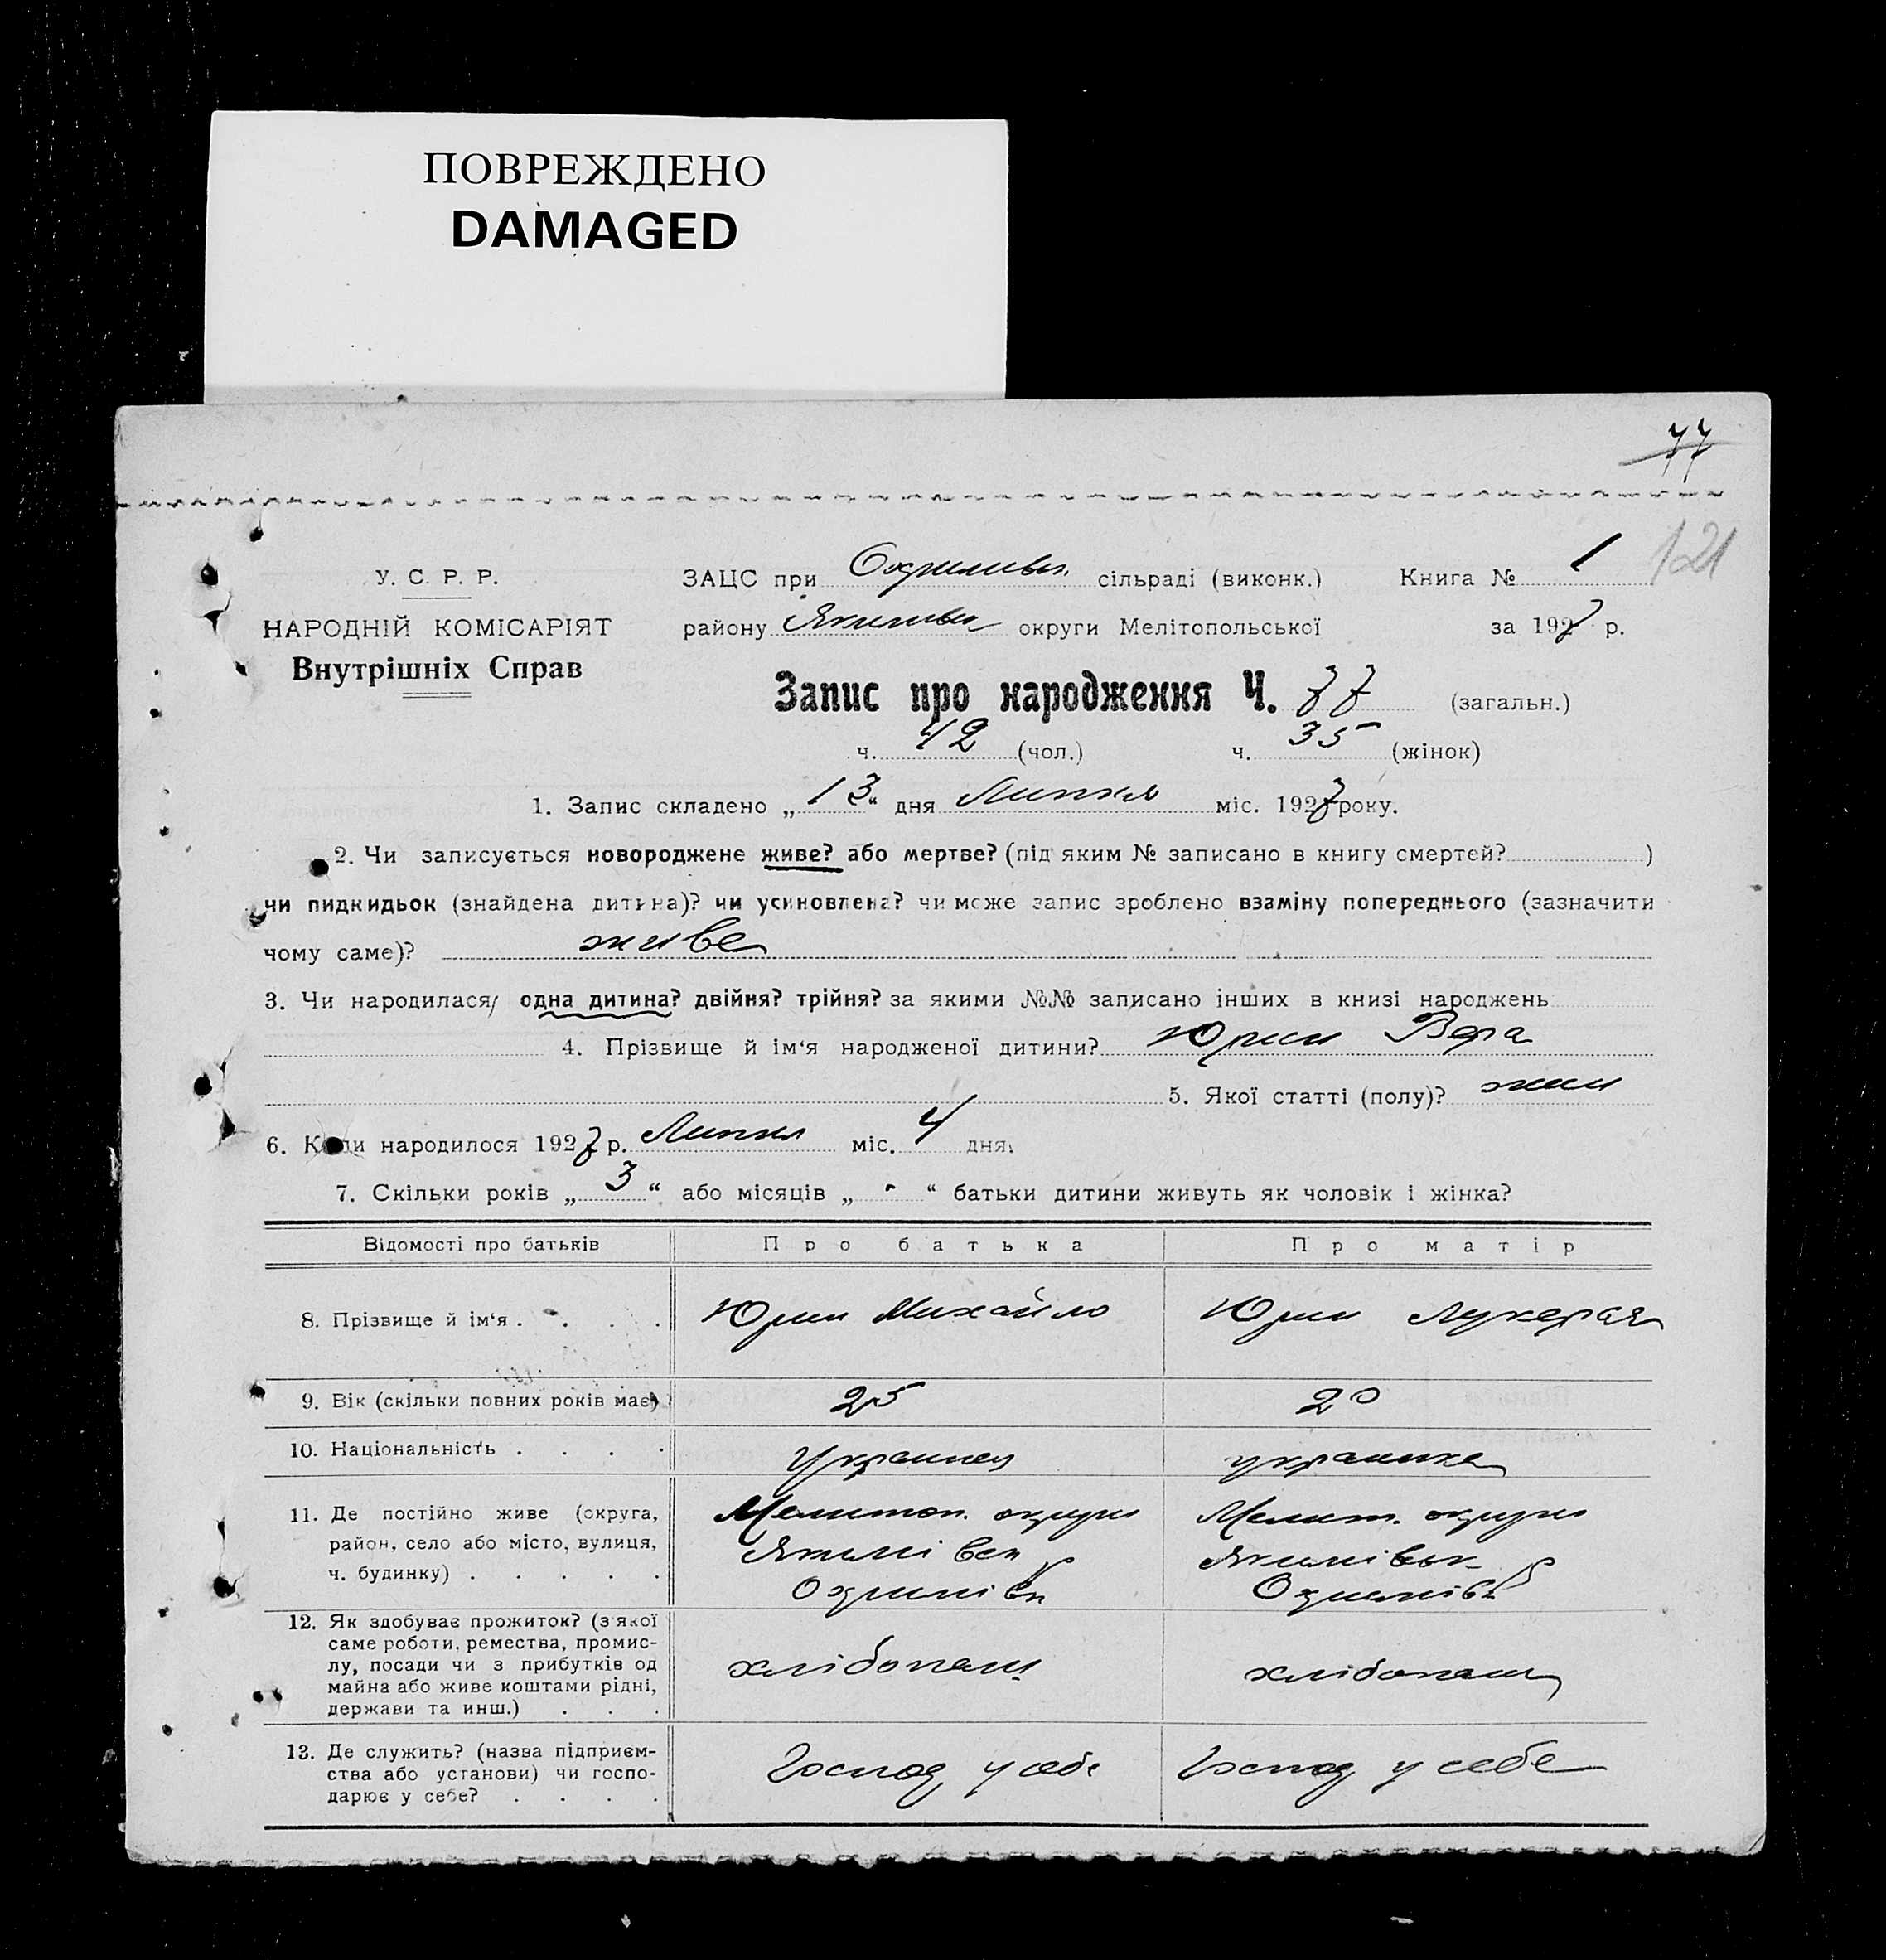 ПОВРЕЖДЕНО
DAMAGED
77
121
У. С. Р. Р.
НАРОДНІЙ КОМІСАРІЯТ
Внутрішніх Справ
ЗАЦС при Охримівськ. сільраді (виконк.) Книга № 1
району Якимівськ округи Мелітопольської за 1927 р.
Запис про народження Ч. 77 (загальн.)
ч. 42 (чол.) ч. 35 (жінок)
1. Запис складено „13“ дня Липня міс. 1927 року.
2. Чи записується новороджене живе? або мертве? (під яким № записано в книгу смертей? )
чи пидкидьок (знайдена дитина)? чи усиновлена? чи може запис зроблено взаміну попереднього (зазначити
чому саме)? живе
3. Чи народилася, одна дитина? двійня? трійня? за якими №№ записано інших в книзі народжень
4. Прізвище й ім‘я народженої дитини? Юрин Вера
5. Якої статті (полу)? жин
6. Коли народилося 1927 р. Липня міс. 4 дня.
7. Скільки років „3“ або місяців „-“ батьки дитини живуть як чоловік і жінка?
Відомості про батьків Про батька Про матір
8. Прізвище й ім‘я . . . . Юрин Михайло Юрин Лукерая
9. Вік (скільки повних років має) 25 20
10. Національність . . . . Украинец украинка
11. Де постійно живе (округа,
район, село або місто, вулиця,
ч. будинку) . . . . .
Мелитоп. округи
Якимівск
Охримівк
Мелит. округи
Якимівськ
Охримівк
12. Як здобуває прожиток? (з якої
саме роботи, ремества, промис-
лу, посади чи з прибутків од
майна або живе коштами рідні,
держави та инш.) . . .
хлібопаш
хлібопаш
13. Де служить? (назва підприєм-
ства або установи) чи госпо-
дарює у себе? . . . .
Господ у себе
Господ у себе